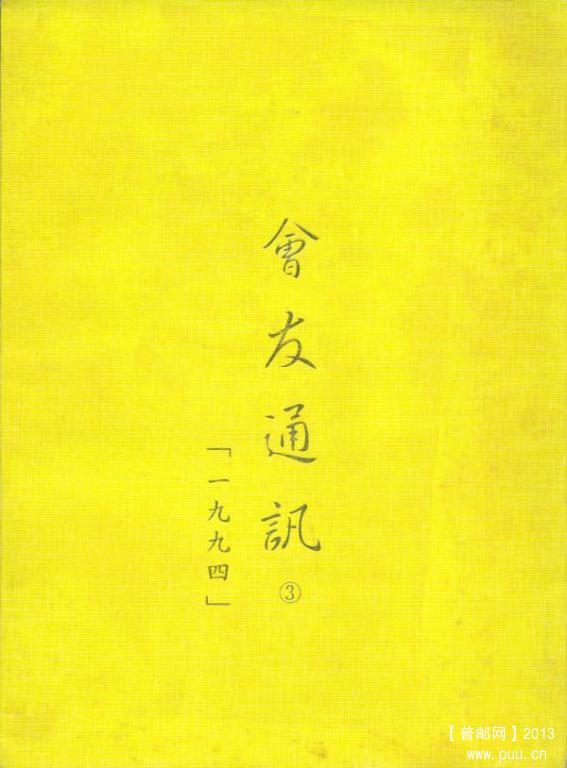 會友通訊③
「一九九四」
【普邮网】2013
www.puu.cn